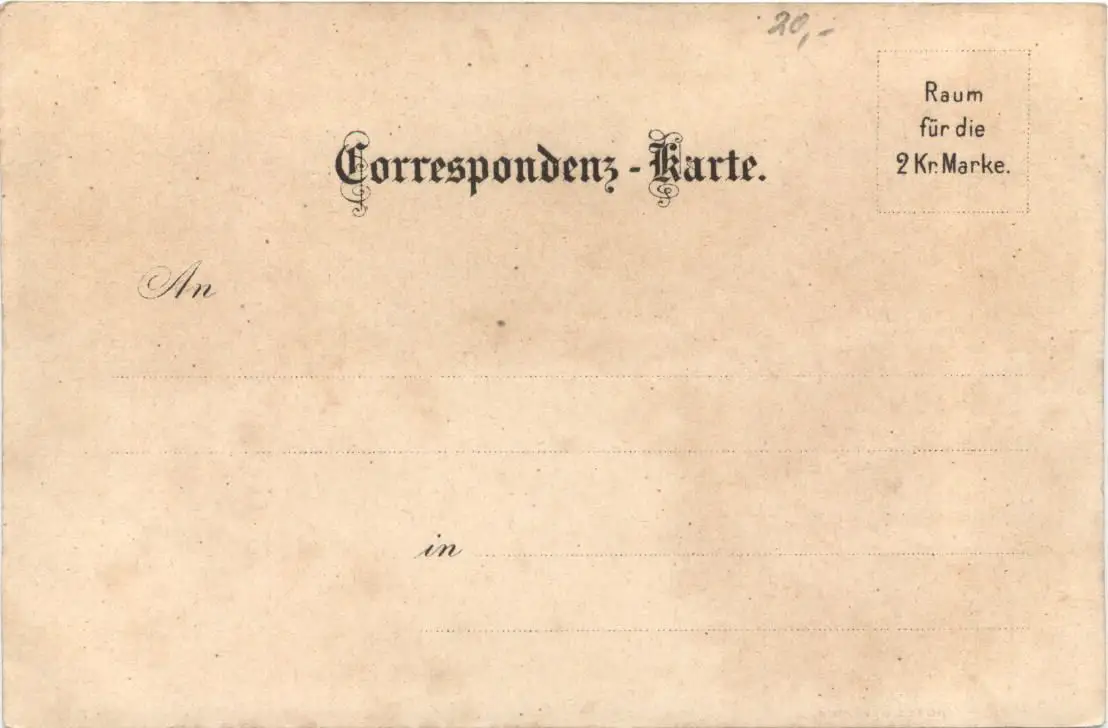 20,-
Raum
für die
2 Kr. Marke.
Correspondenz - Karte.
An
in